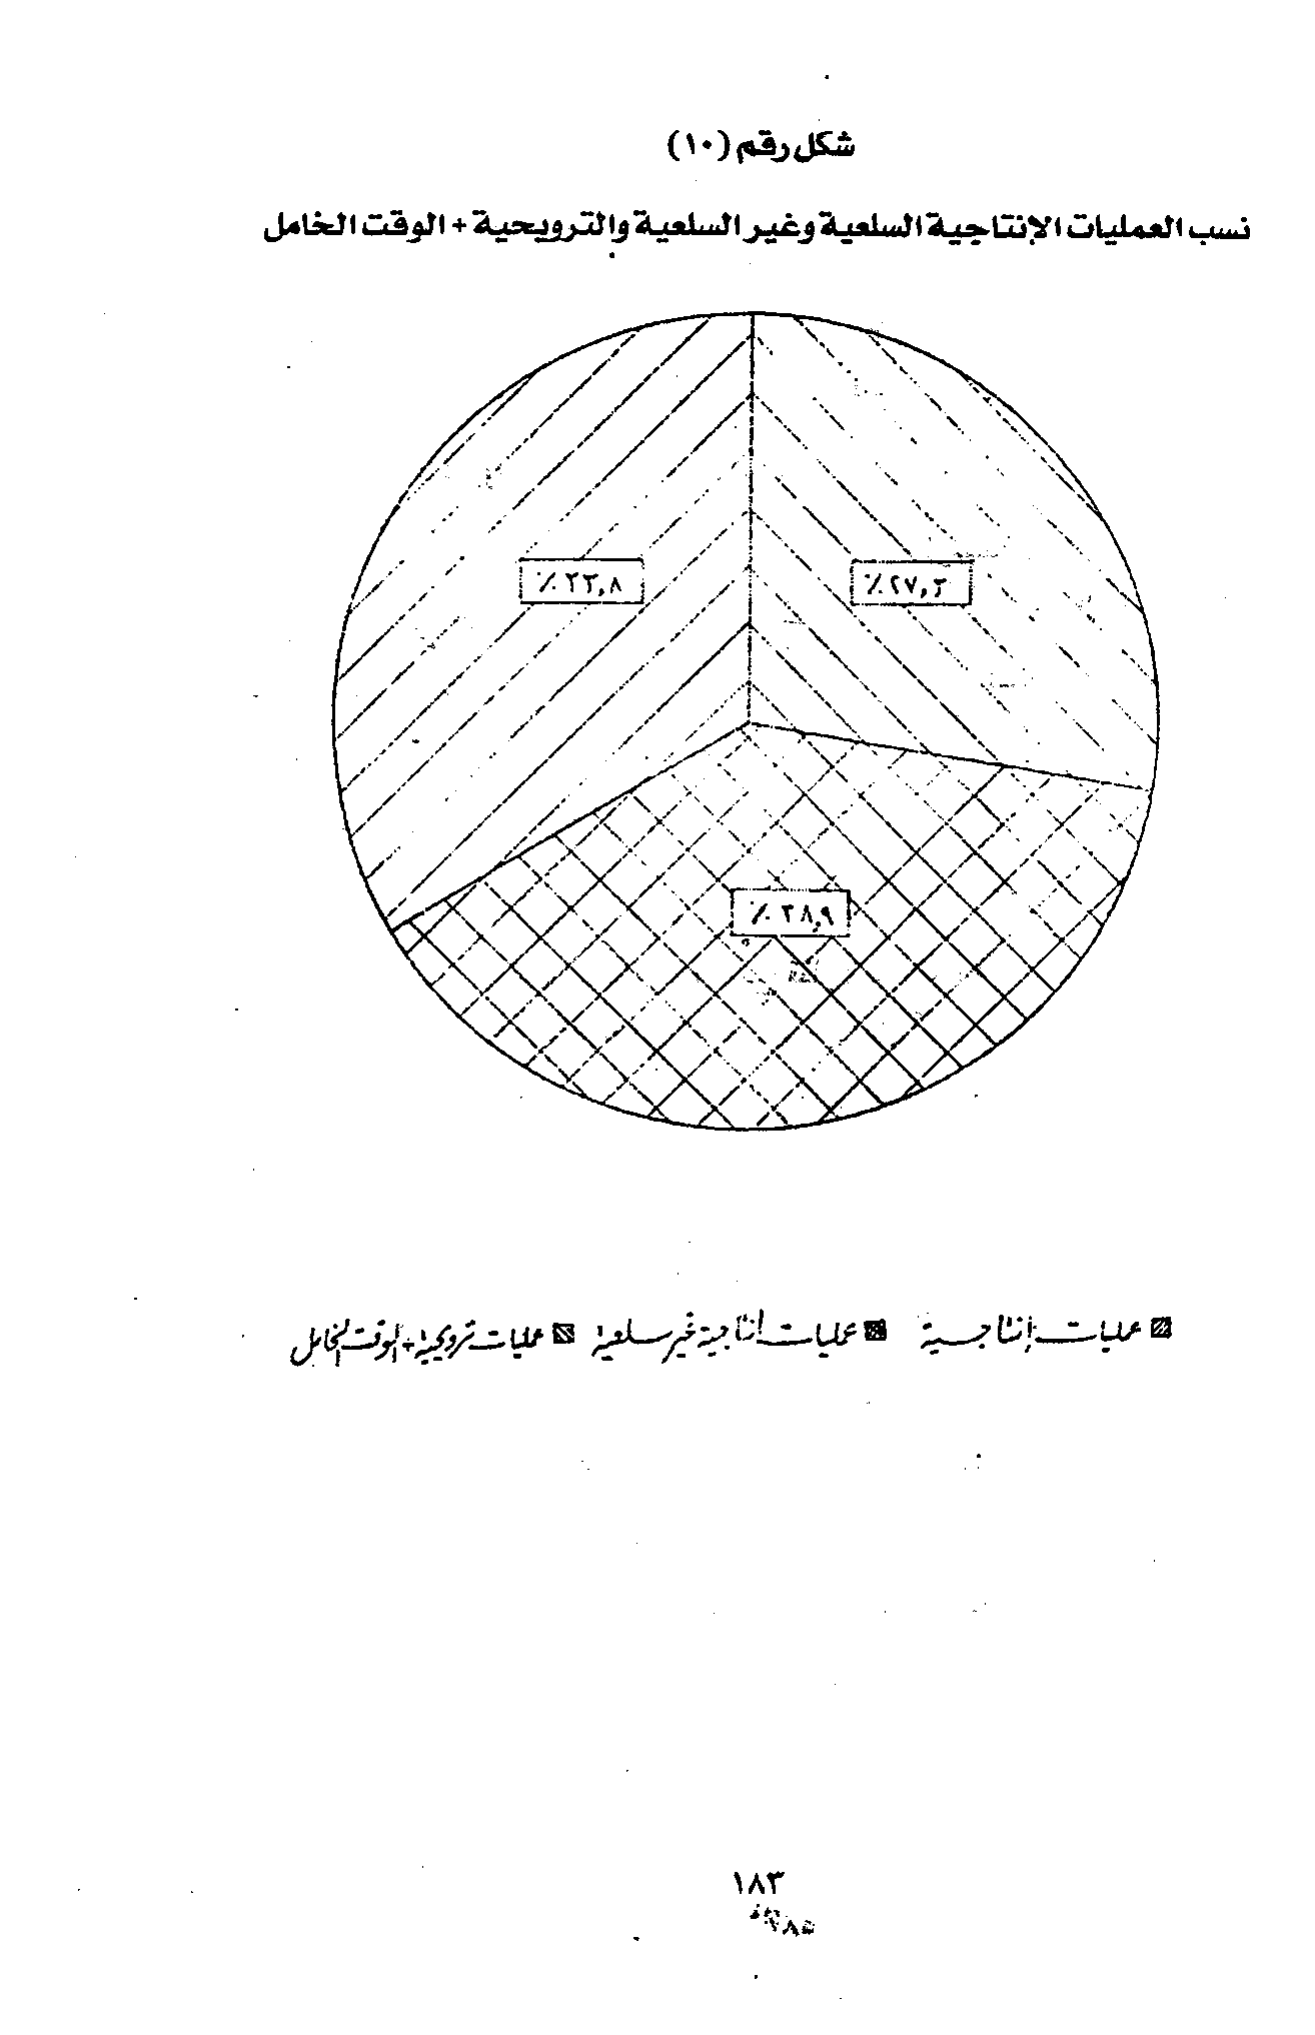 شكل رقم (١٠)
نسب العمليات الإنتاجية السلعية وغير السلعية والترويحية + الوقت الخامل
٢٧,٣٪
٣٣,٨٪
٣٨,٩٪
عمليات إنتاجية عمليات انتاجية غير سلعية عمليات ترويحية + الوقت الخامل
١٨٣